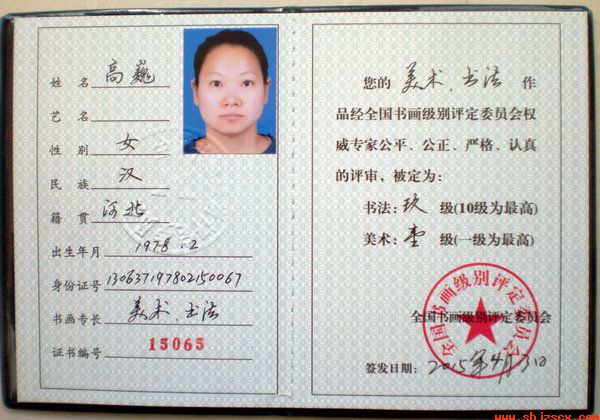 姓名 高巍
艺名
性别 女
民族 汉
籍贯 河北
出生年月 1978.2
身份证号 130637197802150067
书画专长 美术、书法
证书编号 15065
您的 美术、书法 作
品经全国书画级别评定委员会权
威专家公平、公正、严格、认真
的评审，被定为：
书法：玖 级(10级为最高)
美术：壹 级(一级为最高)
全国书画级别评定委员会
全国书画级别评定委员会
签发日期：2015年4月3日
www.shjzscx.com